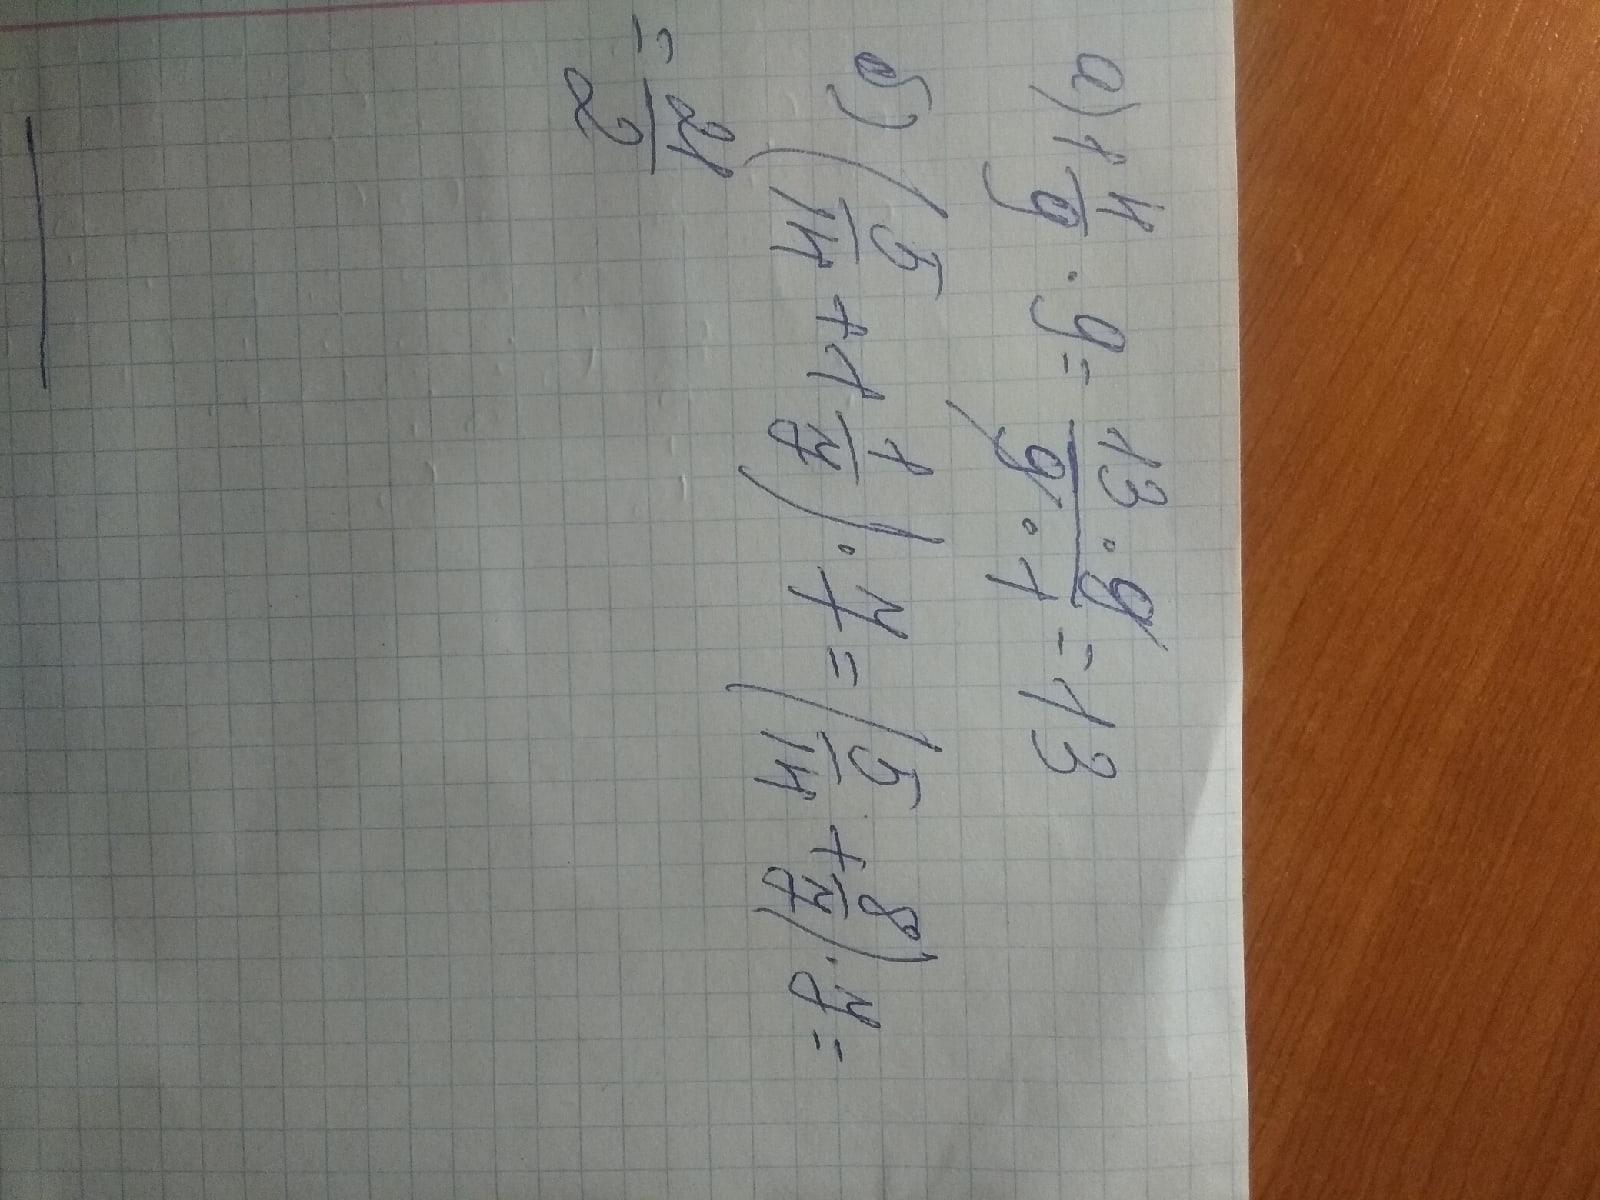 а) 1 4/9 · 9 = 13 · 9 / 9 · 1 = 13
б) (5/14 + 1 1/7) · 7 = (5/14 + 8/7) · 7 =
= 21/2